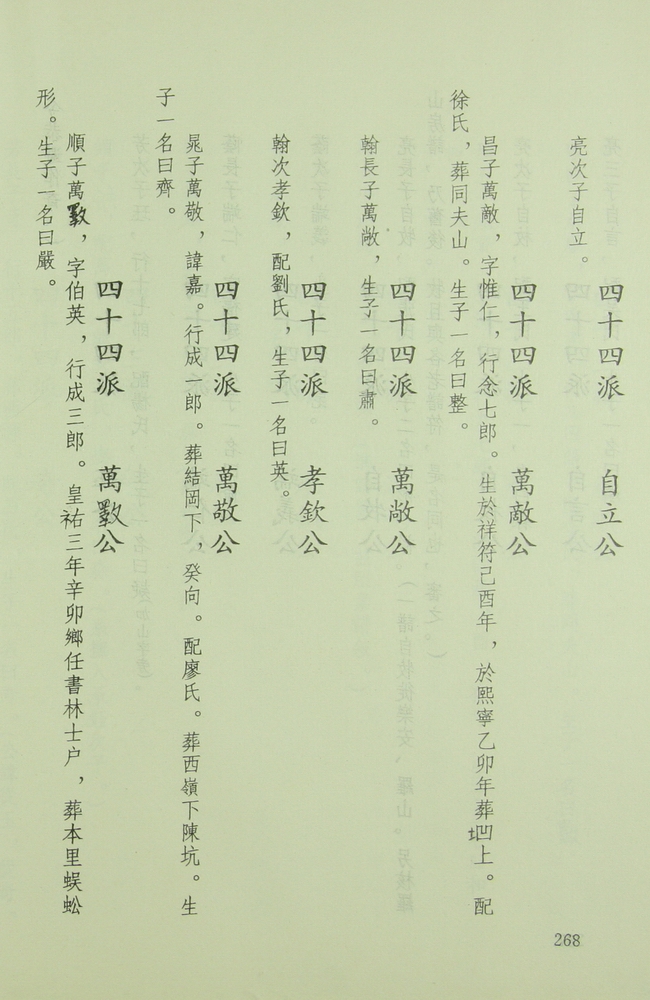 四十四派　自立公
亮次子自立。
四十四派　萬敵公
昌子萬敵，字惟仁，行念七郎。生於祥符己酉年，於熙寧乙卯年葬凹上。配
徐氏，葬同夫山。生子一名曰整。
四十四派　萬敞公
翰長子萬敞，生子一名曰肅。
四十四派　孝欽公
翰次孝欽，配劉氏，生子一名曰英。
四十四派　萬敬公
晁子萬敬，諱嘉。行成一郎。葬結岡下，癸向。配廖氏。葬西嶺下陳坑。生
子一名曰齊。
四十四派　萬斁公
順子萬斁，字伯英，行成三郎。皇祐三年辛卯鄉任書林士户，葬本里蜈蚣
形。生子一名曰嚴。
268